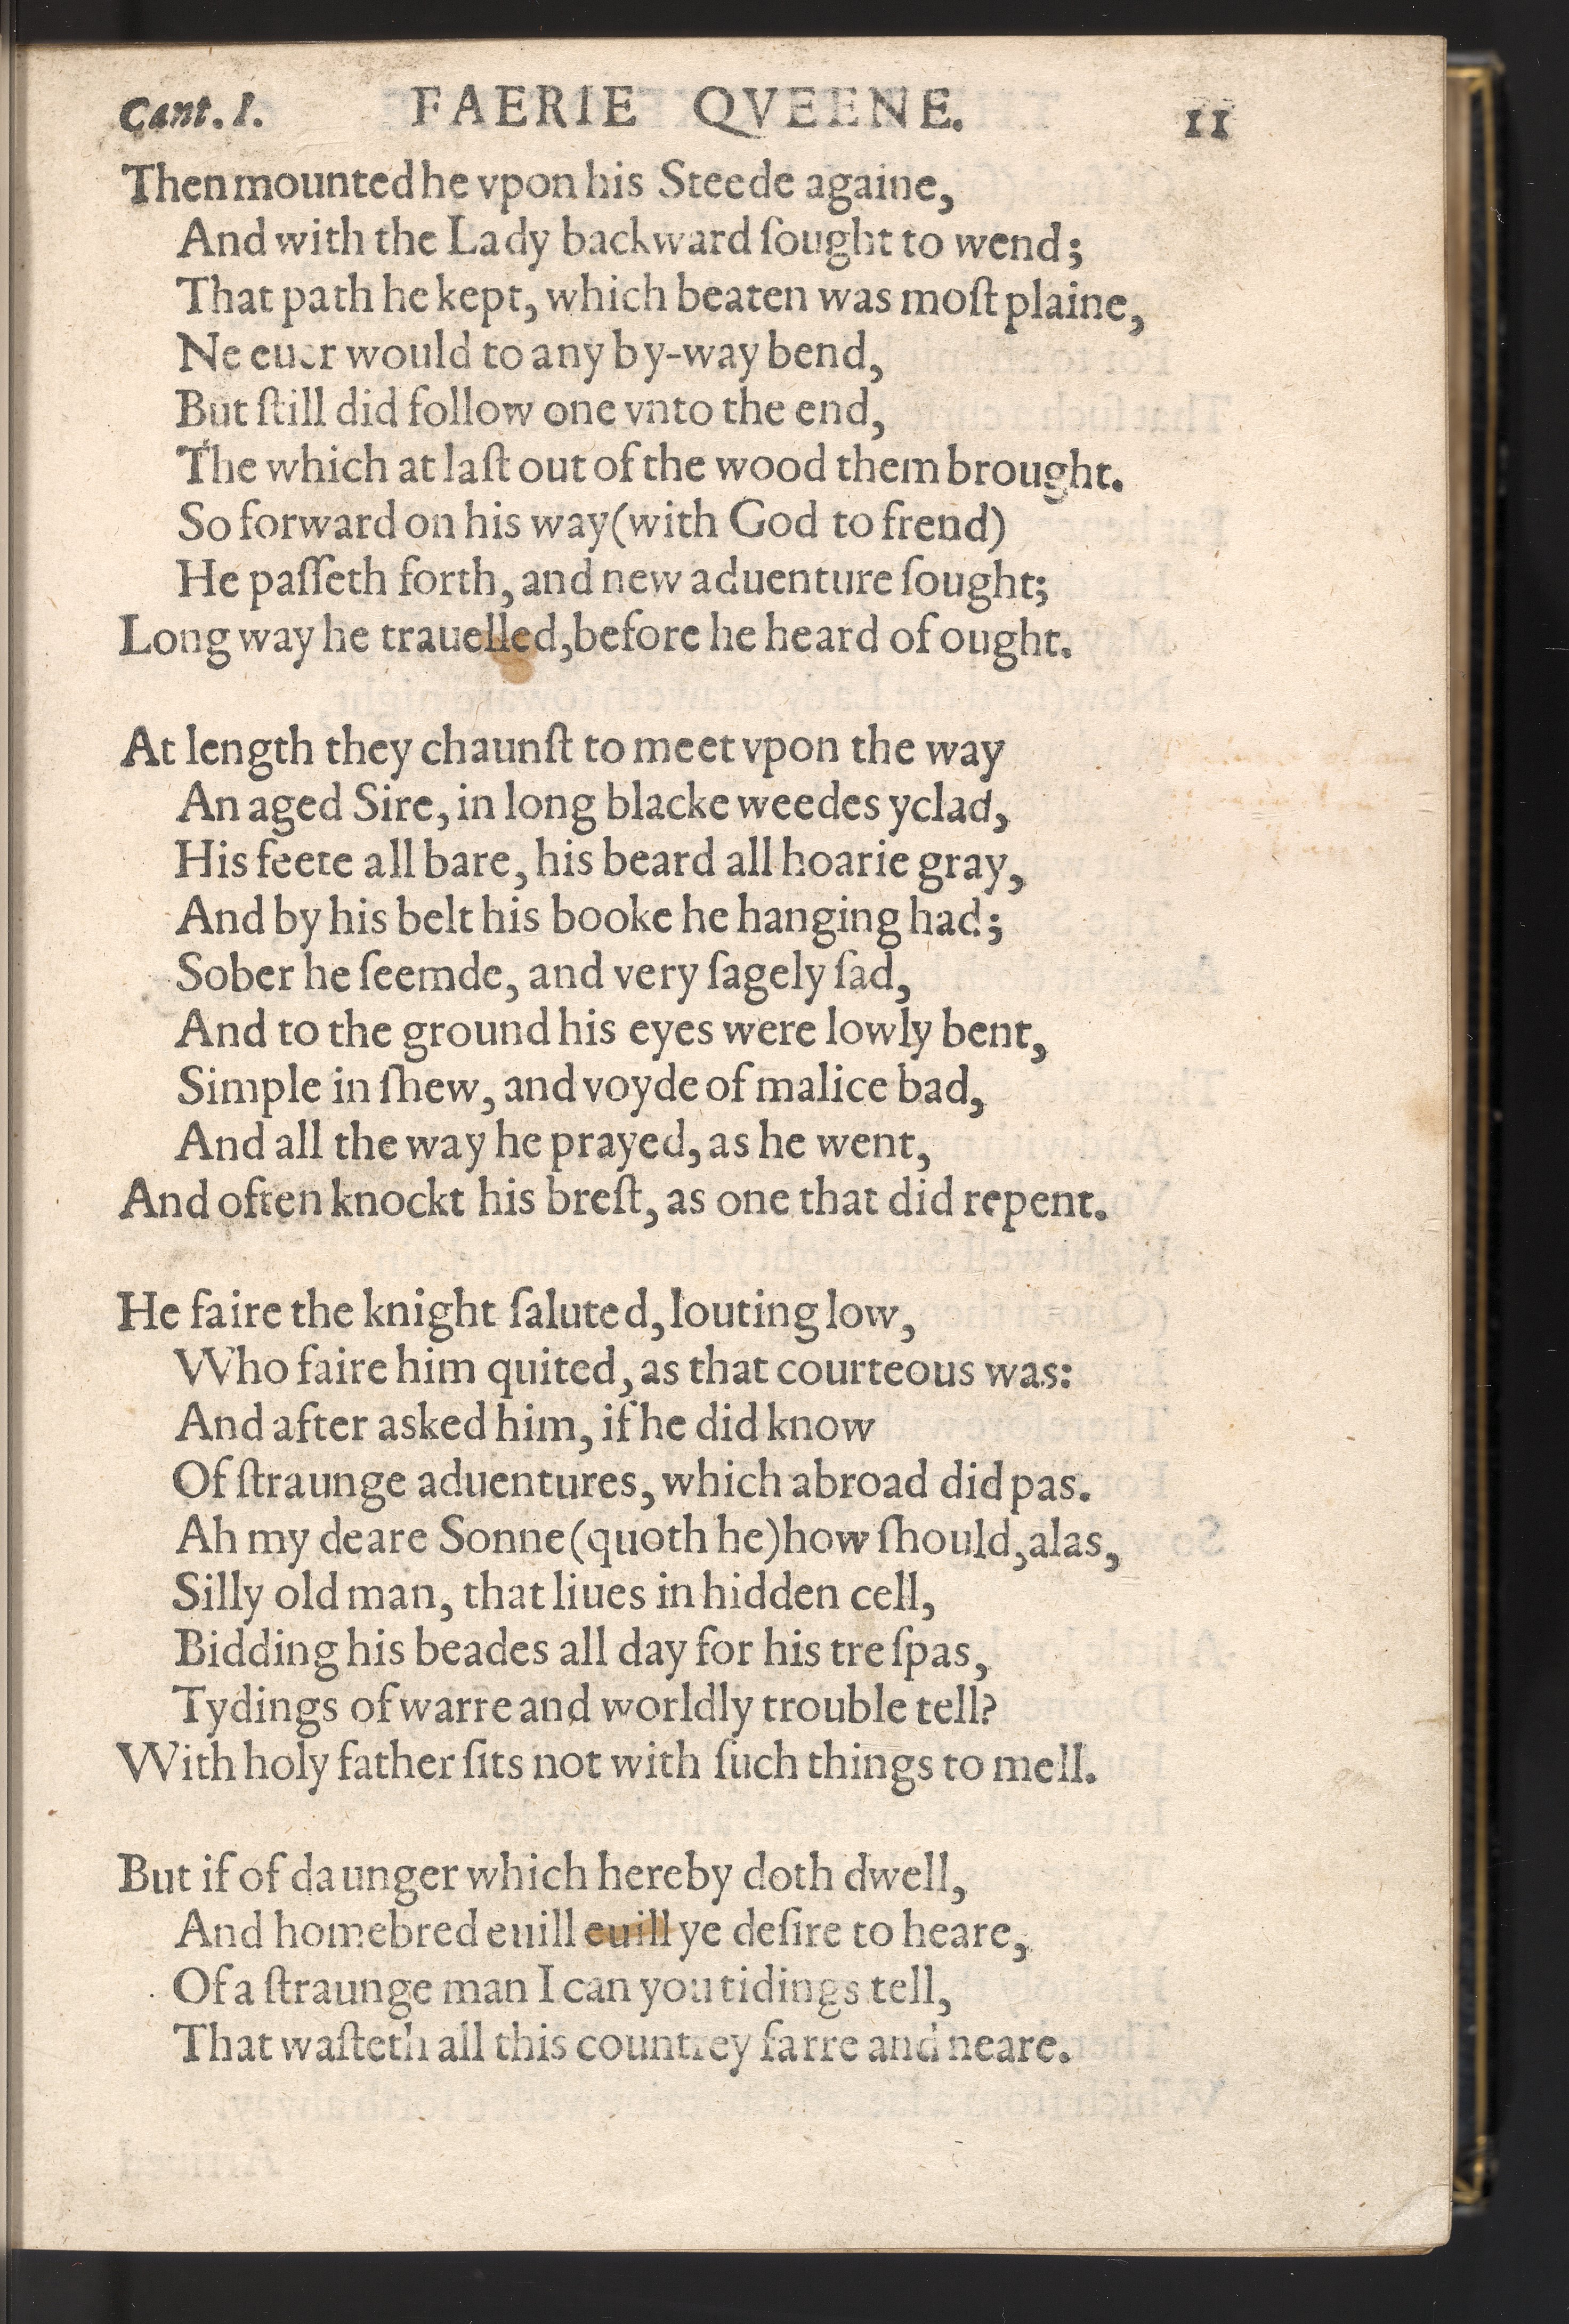 Cant. I. FAERIE QVEENE. 11
Then mounted he vpon his Steede againe,
And with the Lady backward ſought to wend;
That path he kept, which beaten was moſt plaine,
Ne euer would to any by-way bend,
But ſtill did follow one vnto the end,
The which at laſt out of the wood them brought.
So forward on his way (with God to frend)
He paſſeth forth, and new aduenture ſought;
Long way he trauelled, before he heard of ought.
At length they chaunſt to meet vpon the way
An aged Sire, in long blacke weedes yclad,
His feete all bare, his beard all hoarie gray,
And by his belt his booke he hanging had;
Sober he ſeemde, and very ſagely ſad,
And to the ground his eyes were lowly bent,
Simple in ſhew, and voyde of malice bad,
And all the way he prayed, as he went,
And often knockt his breſt, as one that did repent.
He faire the knight ſaluted, louting low,
Who faire him quited, as that courteous was:
And after asked him, if he did know
Of ſtraunge aduentures, which abroad did pas.
Ah my deare Sonne (quoth he) how ſhould, alas,
Silly old man, that liues in hidden cell,
Bidding his beades all day for his treſpas,
Tydings of warre and worldly trouble tell?
With holy father ſits not with ſuch things to mell.
But if of daunger which hereby doth dwell,
And homebred euill euill ye deſire to heare,
Of a ſtraunge man I can you tidings tell,
That waſteth all this countrey farre and neare.